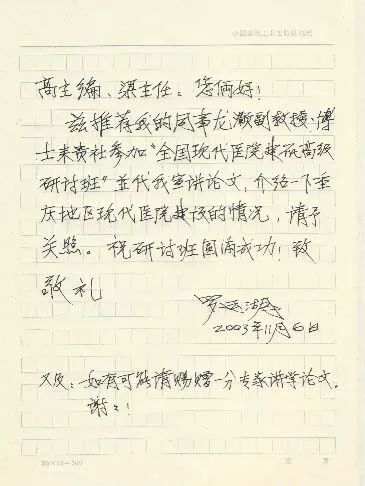 高主编、梁主任：您俩好！
兹推荐我的同事龙灏副教授、博
士来贵社参加“全国现代医院建设高级
研讨班”并代我宣讲论文，介绍一下重
庆地区现代医院建设的情况，请予
关照。祝研讨班圆满成功！致
敬礼
罗运湖
2003年11月6日
又及：如有可能请赐赠一分专家讲学论文。
谢々！